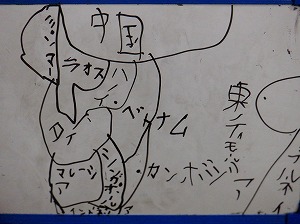 中国
ミャンマー
ラオス
ハノイ
ベトナム
タイ
カンボジア
マレーシア
シンガポール
東ティモール
ブルネイ